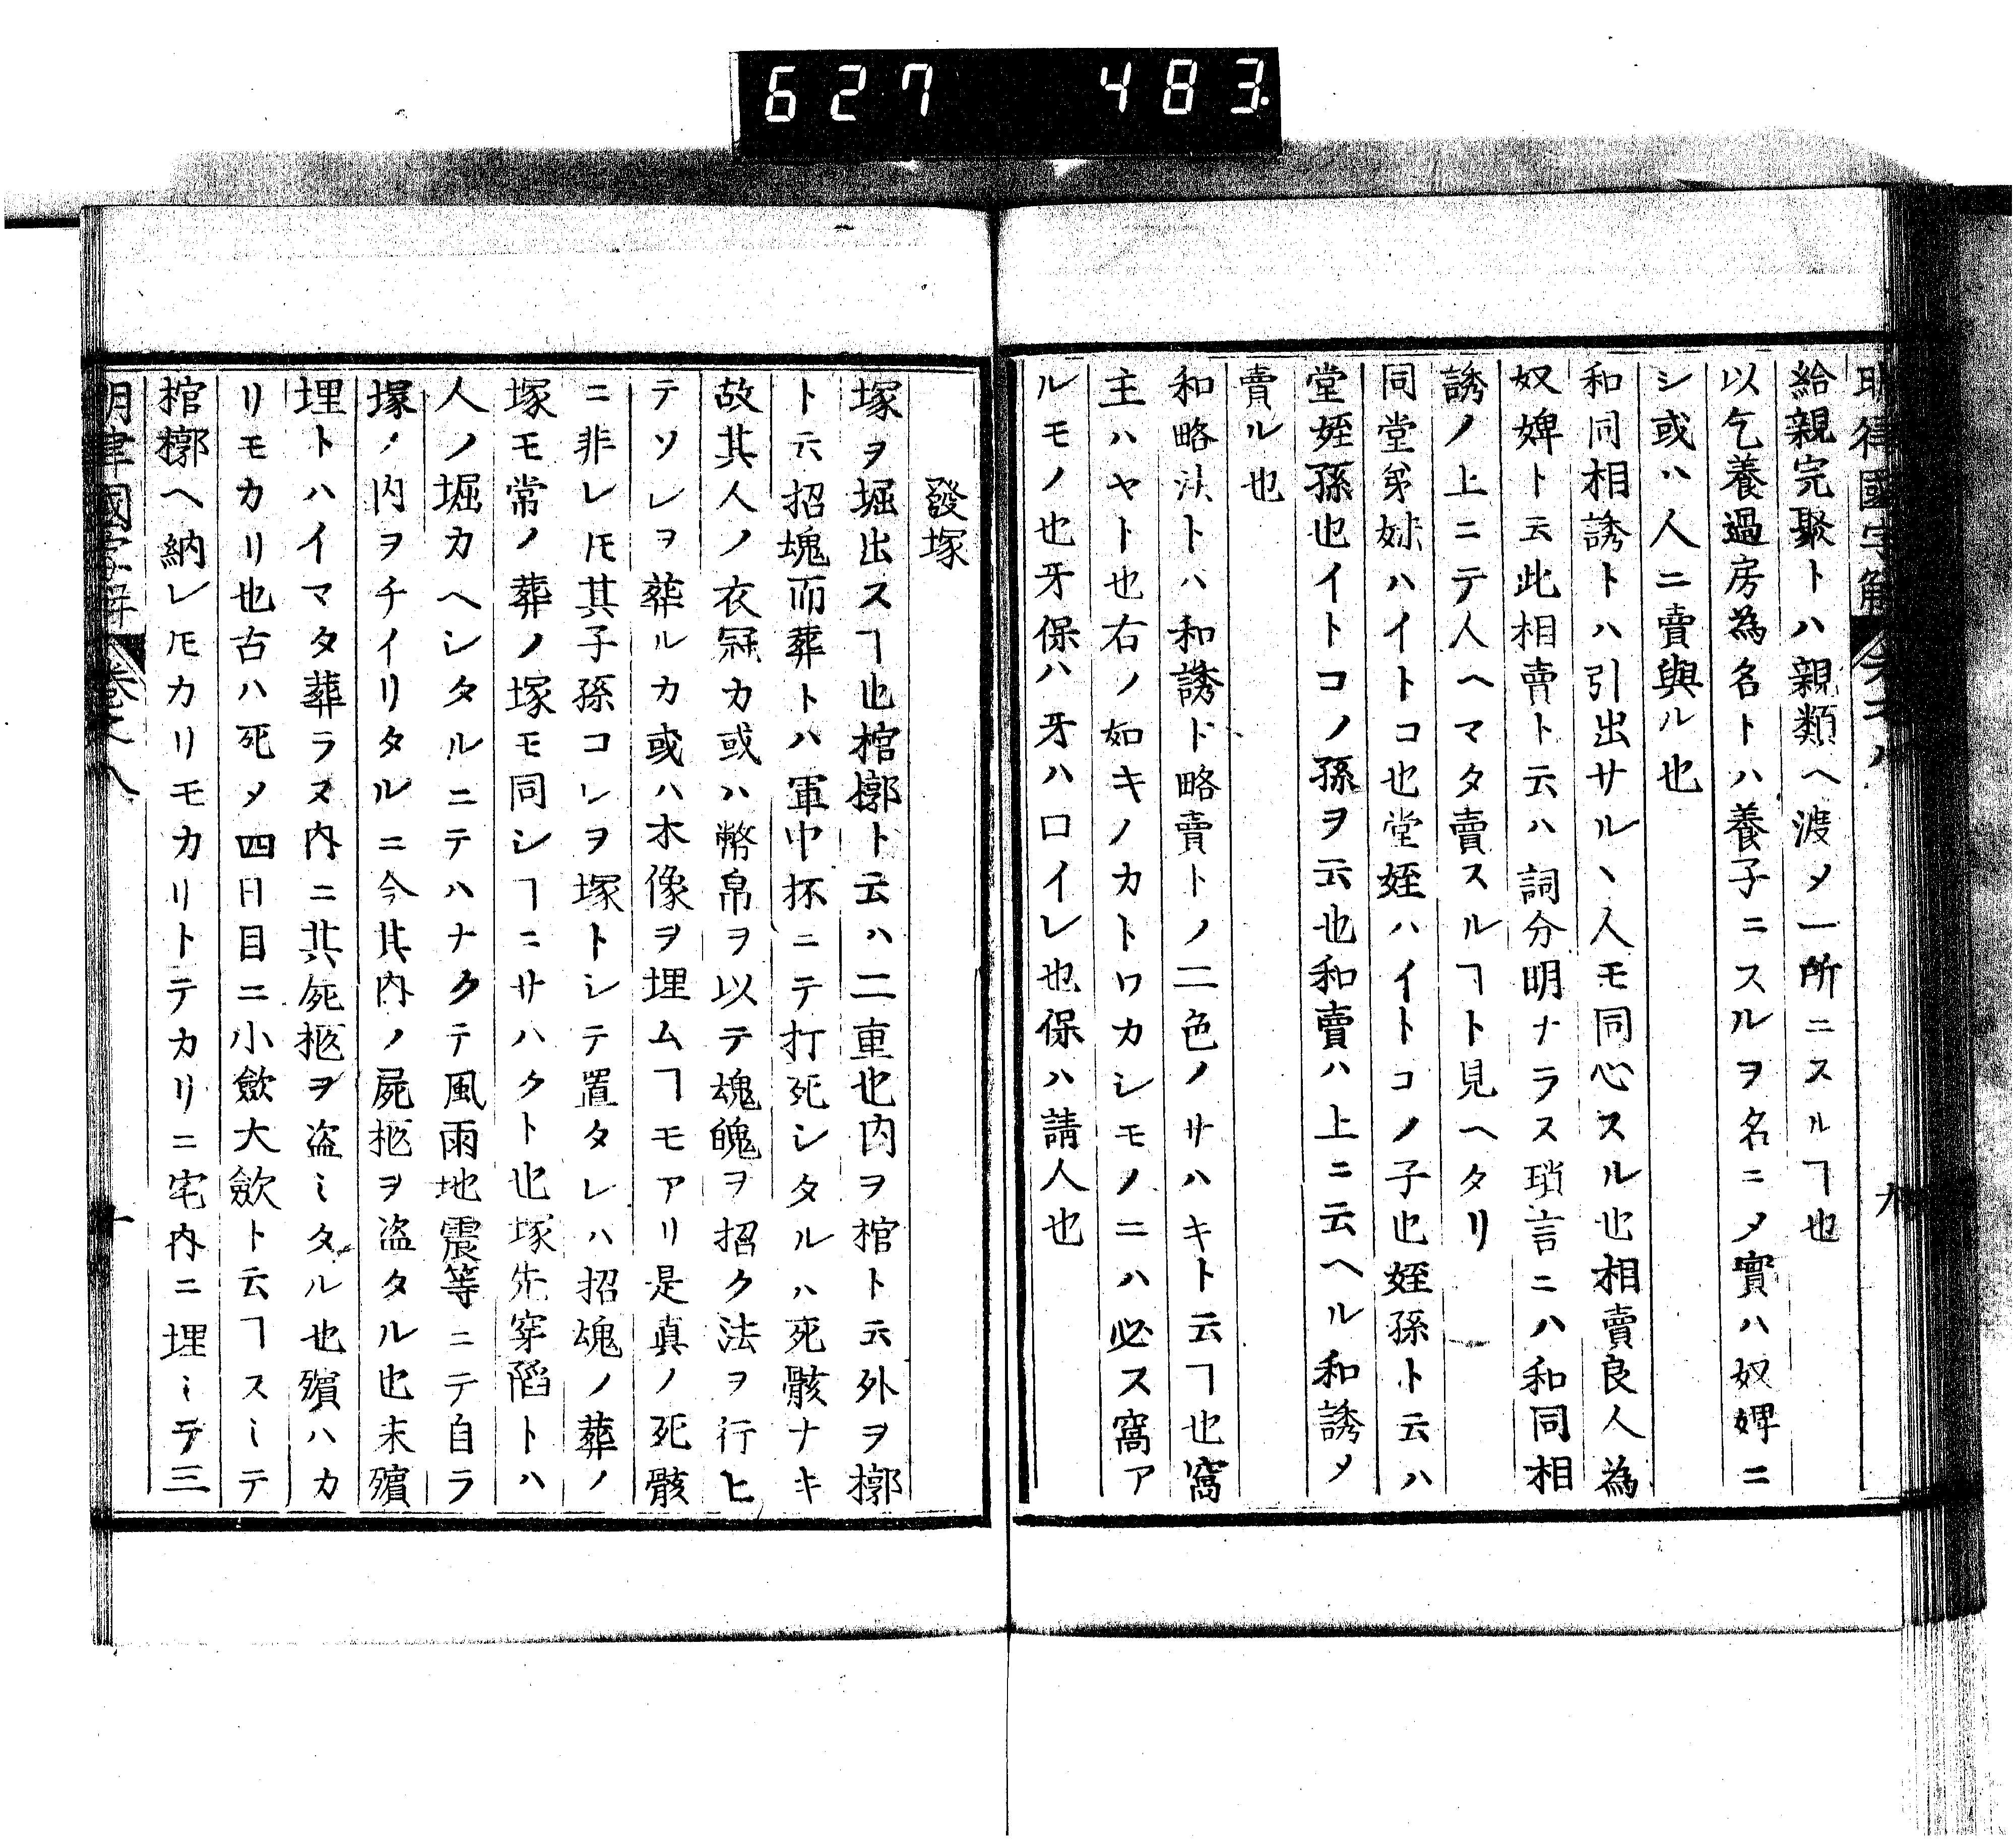 627 483
明律國字解
九
給親完聚トハ親類ヘ渡メ一所ニスルヿ也
以乞養過房為名トハ養子ニスルヲ名ニメ實ハ奴婢ニ
シ或ハ人ニ賣與ル也
和同相誘トハ引出サルヽ人モ同心スル也相賣良人為
奴婢ト云此相賣ト云ハ詞分明ナラス瑣言ニハ和同相
誘ノ上ニテ人ヘマタ賣スルヿト見ヘタリ
同堂弟妹ハイトコ也堂姪ハイトコノ子也姪孫ト云ハ
堂姪孫也イトコノ孫ヲ云也和賣ハ上ニ云ヘル和誘メ
賣ル也
和略法トハ和誘ト略賣トノ二色ノサハキト云ヿ也窩
主ハヤト也右ノ如キノカトワカシモノニハ必ス窩ア
ルモノ也牙保ハ牙ハ口イレ也保ハ請人也
發塚
塚ヲ堀出スヿ也棺槨ト云ハ二重也内ヲ棺ト云外ヲ槨
ト云招魂而葬トハ軍中抔ニテ打死シタルハ死骸ナキ
故其人ノ衣冠カ或ハ幣帛ヲ以テ魂魄ヲ招ク法ヲ行ヒ
テソレヲ葬ルカ或ハ木像ヲ埋ムヿモアリ是真ノ死骸
ニ非レ𪜈其子孫コレヲ塚トシテ置タレハ招魂ノ葬ノ
塚モ常ノ葬ノ塚モ同シヿニサハクト也塚先穿陷トハ
人ノ堀カヘシタルニテハナクテ風雨地震等ニテ自ラ
塚ノ内ヲチイリタルニ今其内ノ屍柩ヲ盗タル也未殯
埋トハイマタ葬ラヌ内ニ其屍柩ヲ盗ミタル也殯ハカ
リモカリ也古ハ死メ四日目ニ小斂大斂ト云ヿスミテ
棺槨ヘ納レ𪜈カリモカリトテカリニ宅内ニ埋ミテ三
明律國字解 卷之八 十